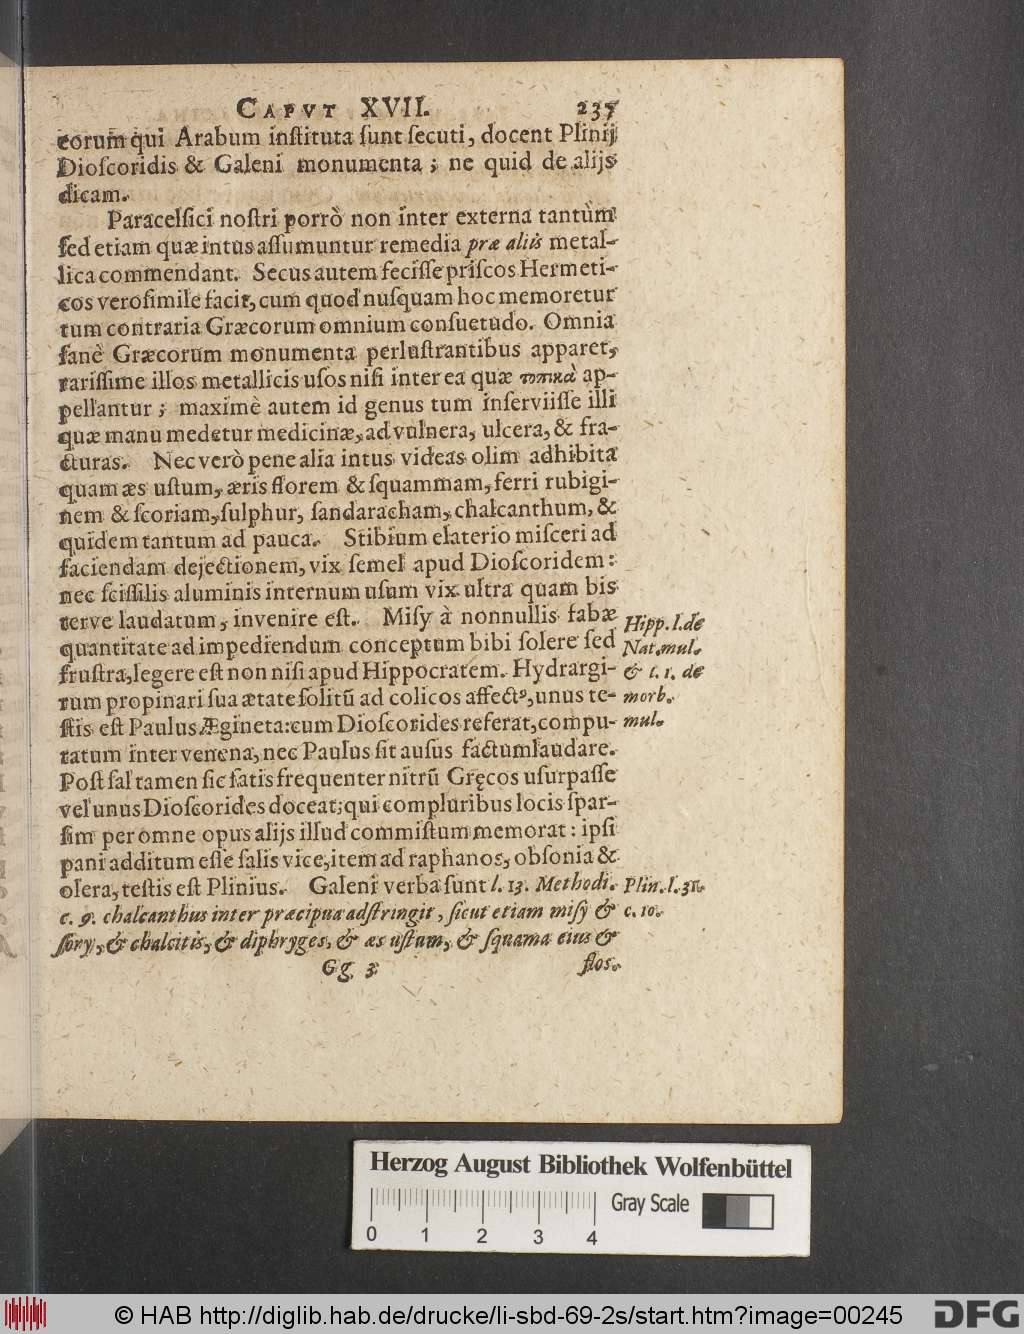 CAPVT XVII. 237
eorum qui Arabum inſtituta ſunt ſecuti, docent Plinij
Dioſcoridis & Galeni monumenta; ne quid de alijs
dicam.
Paracelſici noſtri porrò non inter externa tantùm
ſed etiam quæ intus aſſumuntur remedia præ aliis metal-
lica commendant. Secus autem feciſſe priſcos Hermeti-
cos veroſimile facit, cum quod nuſquam hoc memoretur
tum contraria Græcorum omnium conſuetudo. Omnia
ſanè Græcorum monumenta perluſtrantibus apparet,
rariſſime illos metallicis uſos niſi inter ea quæ τοπικὰ ap-
pellantur; maximè autem id genus tum inſerviiſſe illi
quæ manu medetur medicinæ, ad vulnera, ulcera, & fra-
cturas. Nec verò pene alia intus videas olim adhibita
quam æs uſtum, æris florem & ſquammam, ferri rubigi-
nem & ſcoriam, ſulphur, ſandaracham, chalcanthum, &
quidem tantum ad pauca. Stibium elaterio miſceri ad
faciendam dejectionem, vix ſemel apud Dioſcoridem:
nec ſciſſilis aluminis internum uſum vix ultra quam bis
terve laudatum, invenire eſt. Miſy à nonnullis fabæ
quantitate ad impediendum conceptum bibi ſolere ſed
fruſtra, legere eſt non niſi apud Hippocratem. Hydrargi-
rum propinari ſua ætate ſolitũ ad colicos affectꝰ, unus te-
ſtis eſt Paulus Ægineta: cum Dioſcorides referat, compu-
tatum inter venena, nec Paulus ſit auſus factum laudare.
Poſt ſal tamen ſic ſatis frequenter nitrũ Gręcos uſurpaſſe
vel unus Dioſcorides doceat; qui compluribus locis ſpar-
ſim per omne opus alijs illud commiſtum memorat: ipſi
pani additum eſſe ſalis vice, item ad raphanos, obſonia &
olera, teſtis eſt Plinius. Galeni verba ſunt l. 13. Methodi.
c. 9. chalcanthus inter præcipua adſtringit, ſicut etiam miſy &
ſory, & chalcitis, & diphryges, & æs uſtum, & ſquama eius &
Gg 3 flos.
Hipp. l. de
Nat. mul.
& l. 1. de
morb.
mul.
Plin. l. 31.
c. 10.
Herzog August Bibliothek Wolfenbüttel
Gray Scale
0 1 2 3 4
© HAB http://diglib.hab.de/drucke/li-sbd-69-2s/start.htm?image=00245
DFG